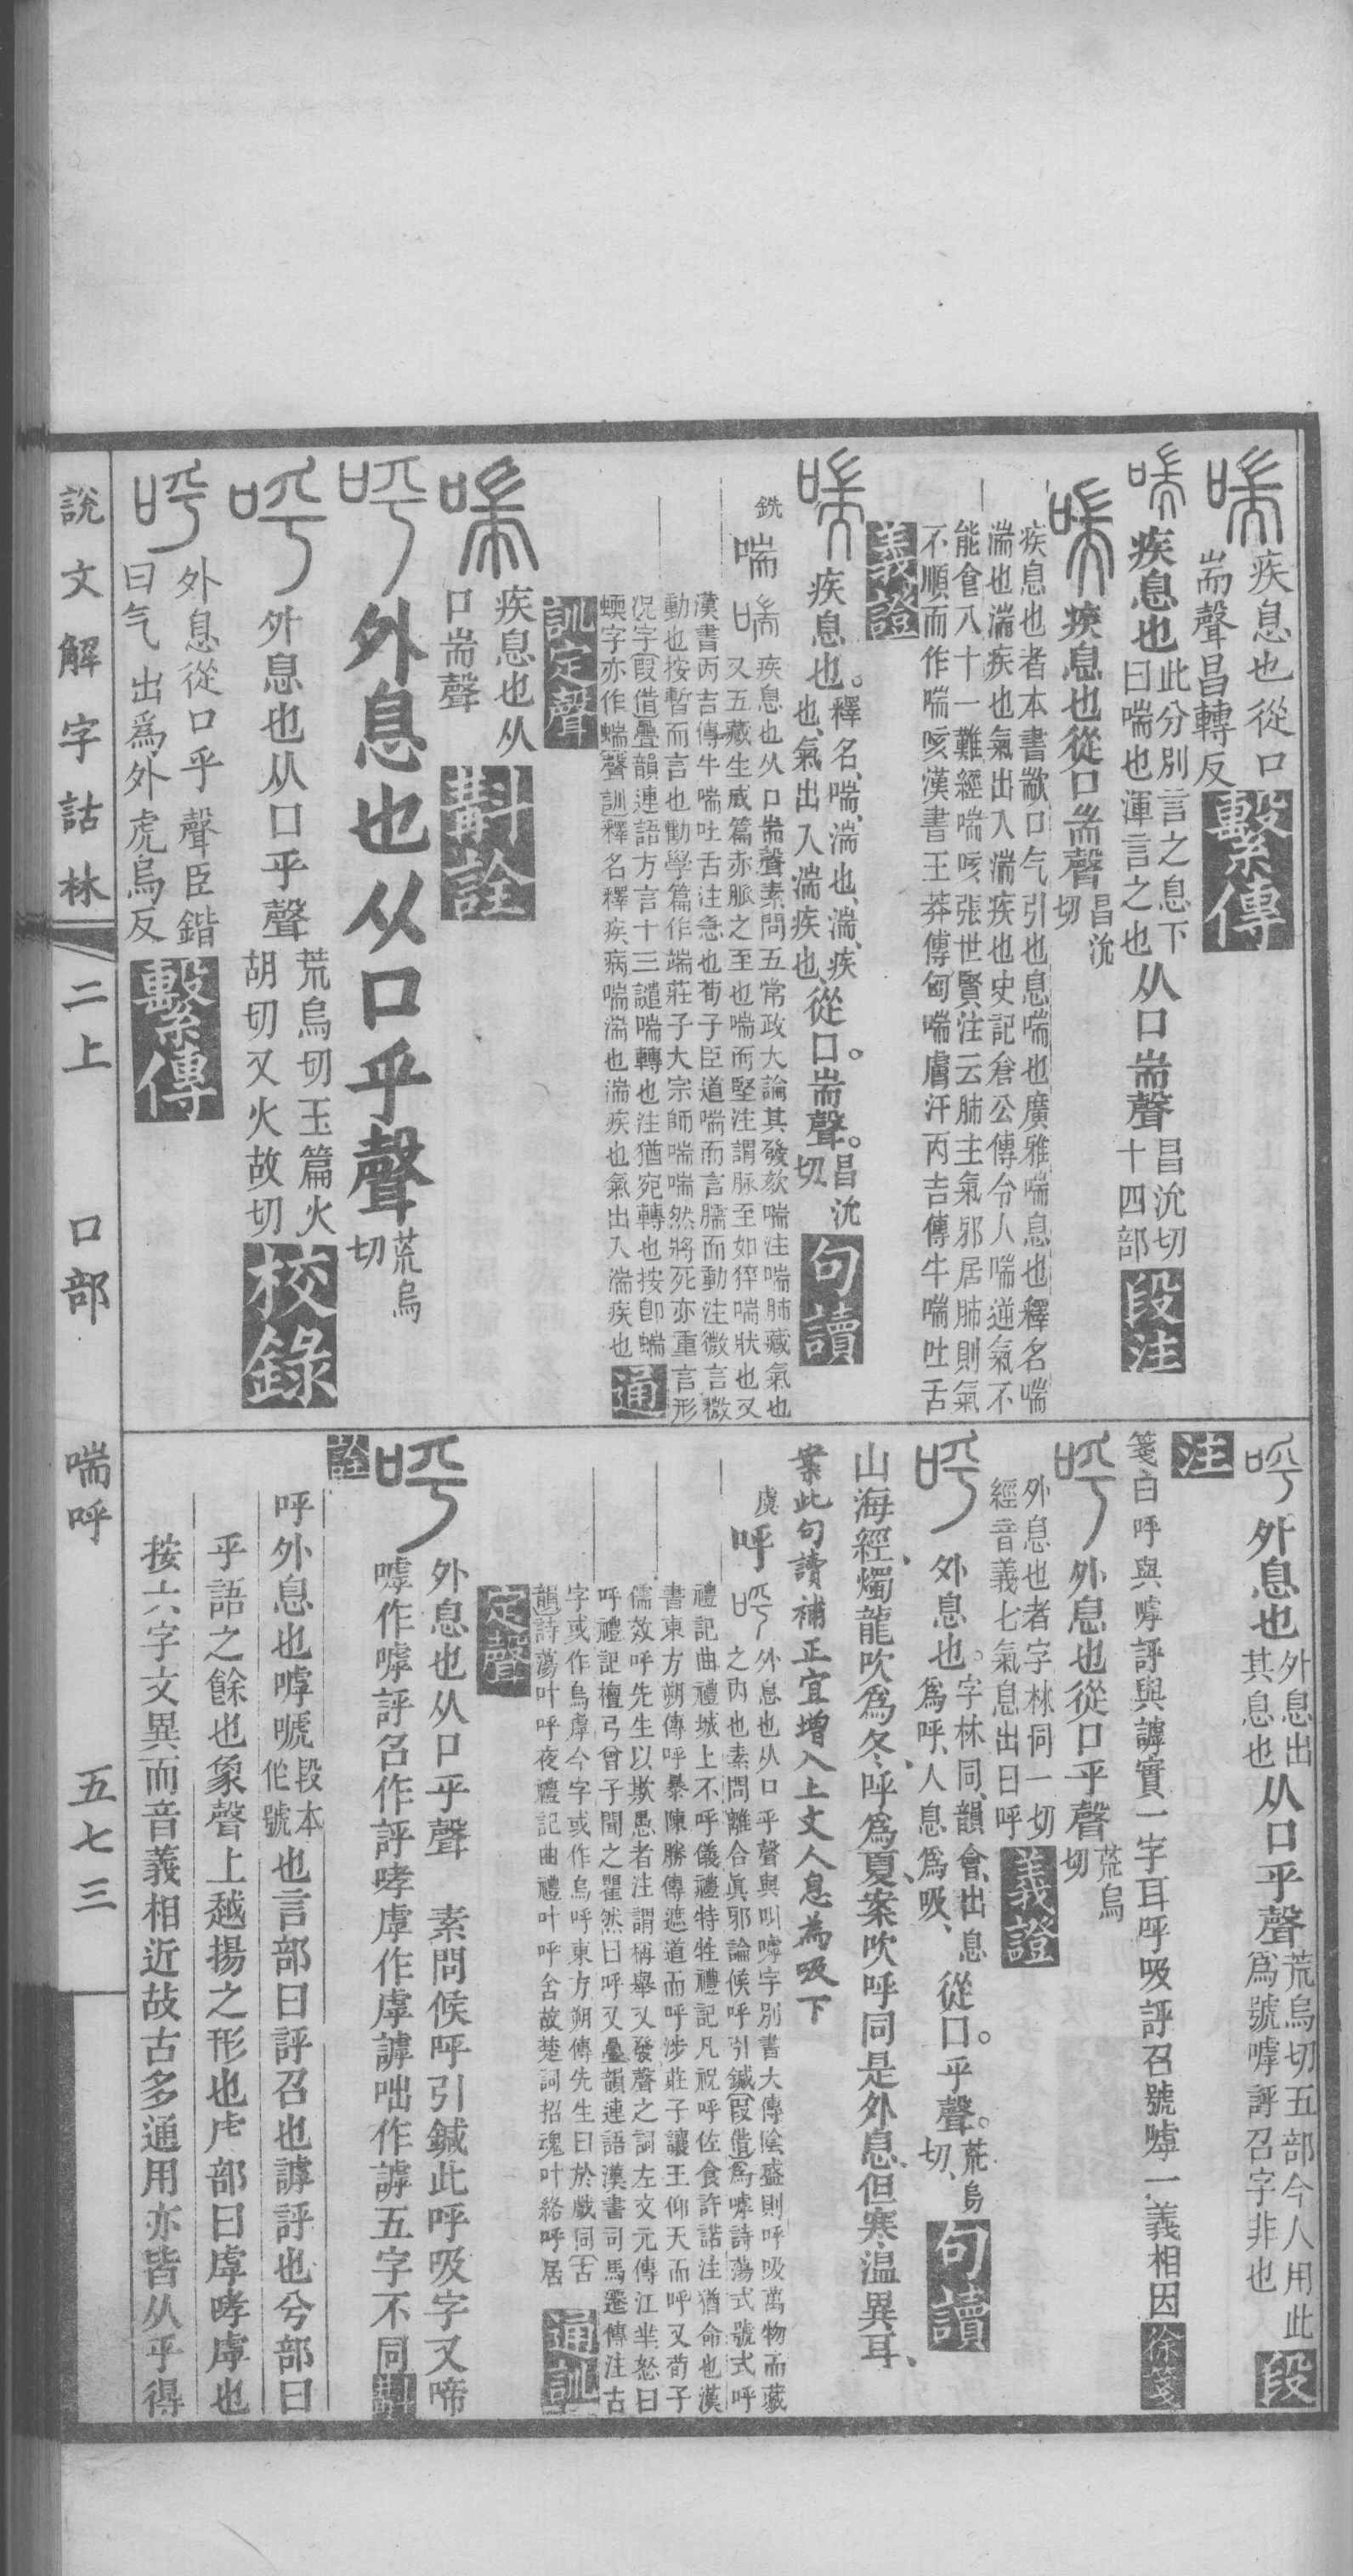 喘
疾息也從口
耑聲昌轉反
繫傳
喘
疾息也
此分別言之息下
曰喘也渾言之也
从口耑聲
昌沇切
十四部
段注
喘
疾息也從口耑聲
昌沇
切
疾息也者本書歂口气引也息喘也廣雅喘息也釋名喘
湍也湍疾也氣出入湍疾也史記倉公傳令人喘逆氣不
能食八十一難經喘咳張世賢注云肺主氣邪居肺則氣
不順而作喘咳漢書王莽傳匈喘膚汗丙吉傳牛喘吐舌
義證
喘
疾息也。
釋名、喘、湍也、湍、疾
也、氣出入湍疾也、
從口。耑聲。
昌沇
切、
句讀
銑
喘
喘
疾息也从口耑聲素問五常政大論其發欬喘注喘肺藏氣也
又五藏生成篇赤脈之至也喘而堅注謂脈至如猝喘狀也又
漢書丙吉傳牛喘吐舌注急也荀子臣道喘而言臑而動注微言微
動也按暫而言也勸學篇作端莊子大宗師喘喘然將死亦重言形
況字叚借疊韻連語方言十三譴喘轉也注猶宛轉也按卽蝡
蝡字亦作蝡聲訓釋名釋疾病喘湍也湍疾也氣出入湍疾也
通
訓定聲
喘
疾息也从
口耑聲
斠詮
呼
外息也从口乎聲
荒烏
切
呼
外息也从口乎聲
荒烏切玉篇火
胡切又火故切
校錄
呼
外息從口乎聲臣鍇
曰气出爲外虎烏反
繫傳
呼
外息也
外息出
其息也
从口乎聲
荒烏切五部今人用此
爲號嘑評召字非也
段
注
箋曰呼與嘑評與謼實一字耳呼吸評召號嘑一義相因
徐箋
呼
外息也從口乎聲
荒烏
切
外息也者字林同一切
經音義七氣息出曰呼
義證
呼
外息也。
字林同、韻會、出息
爲呼、人息爲吸、
從口。乎聲。
荒烏
切、
句讀
山海經、燭龍吹爲冬、呼爲夏、案吹呼同是外息、但寒溫異耳、
案此句讀補正宜增入上文人息為吸下
虞
呼
呼
外息也从口乎聲與叫嘑字別書大傳陰盛則呼吸萬物而藏
之內也素問離合眞邪論候呼引鍼叚借爲嘑詩蕩式號式呼
禮記曲禮城上不呼儀禮特牲禮記凡祝呼佐食許諾注猶命也漢
書東方朔傳呼暴陳勝傳遮道而呼涉莊子讓王仰天而呼又荀子
儒效呼先生以欺愚者注謂稱舉又發聲之詞左文元傳江芈怒曰
呼禮記檀弓曾子聞之瞿然曰呼又疊韻連語漢書司馬遷傳注古
字或作烏虖今字或作烏呼東方朔傳先生曰於戲同古
韻詩蕩叶呼夜禮記曲禮叶呼舍故楚詞招魂叶絡呼居
通訓
定聲
呼
外息也从口乎聲　素問候呼引鍼此呼吸字又啼
嘑作嘑評名作評哮虖作虖謼咄作謼五字不同
斠
詮
呼外息也嘑嗁
段本
作號
也言部曰評召也謼評也兮部曰
乎語之餘也象聲上越揚之形也虍部曰虖哮虖也
按六字文異而音義相近故古多通用亦皆从乎得
說文解字詁林
二上
口部
喘呼
五七三